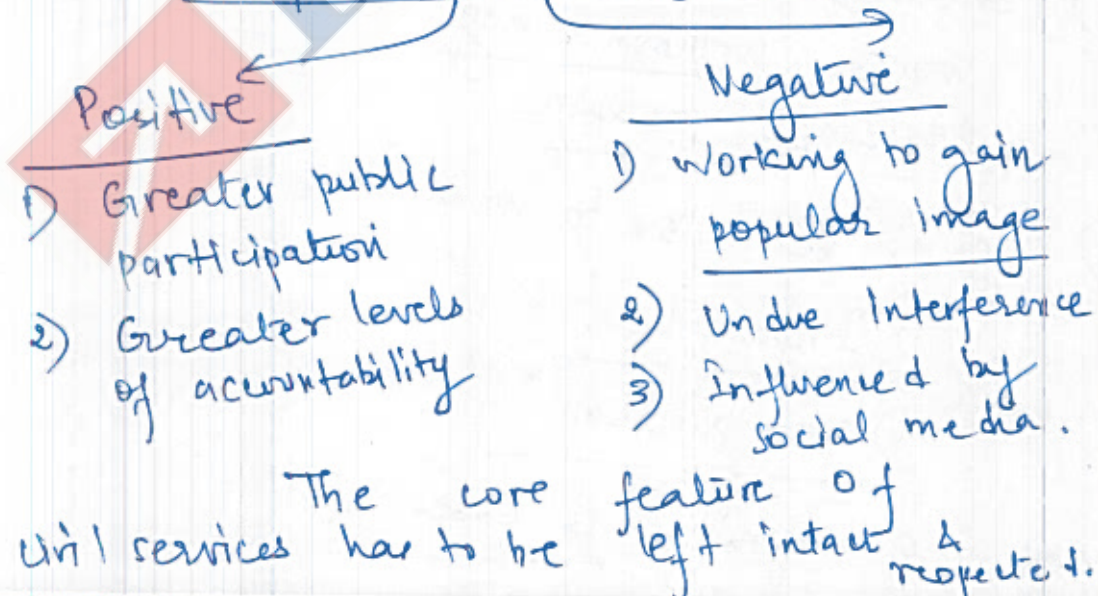 Positive
1) Greater public
participation
2) Greater levels
of accountability
Negative
1) Working to gain
popular image
2) Undue Interference
3) Influenced by
social media.
The core feature of
civil services has to be left intact &
respected.